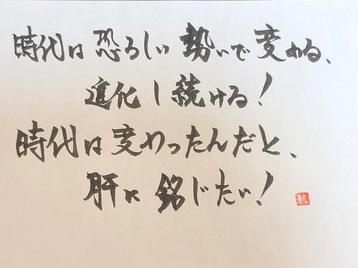 時代は恐ろしい勢いで変わる、
進化し続ける!
時代は変わったんだと、
肝に銘じたい!